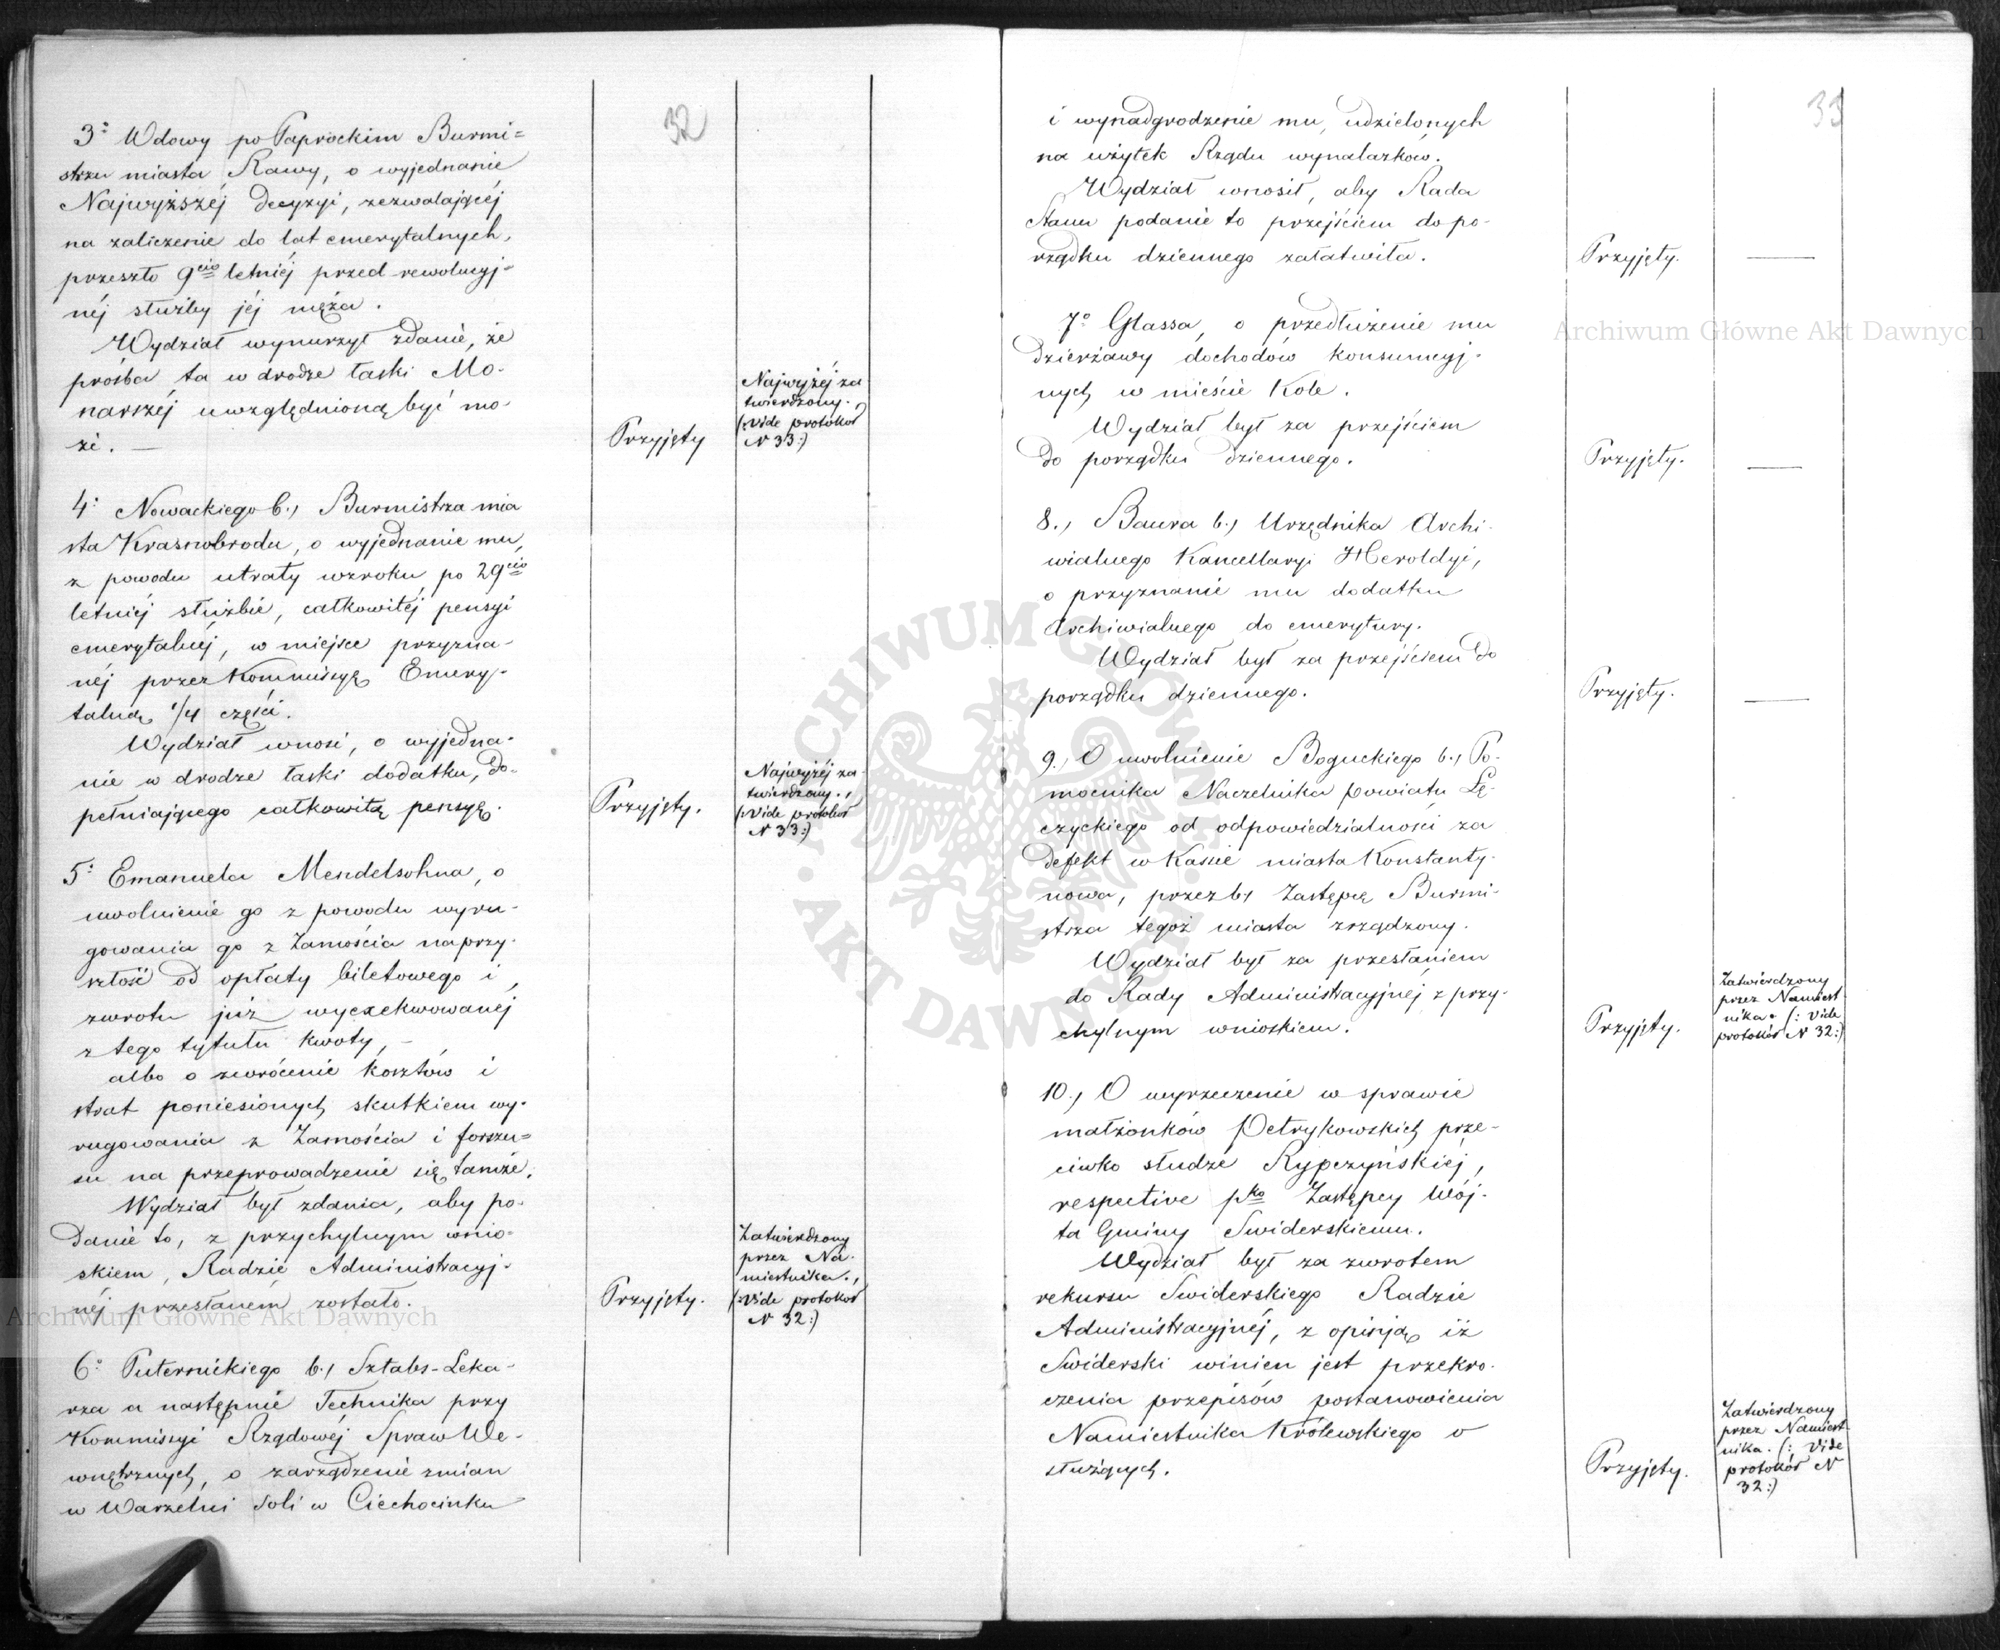 32
3° Wdowy po Paprockim Burmi=
strzu miasta Rawy, o wyjednanie
Najwyższéj decyzyi, zezwalającéj
na zaliczenie do lat emerytalnych,
przeszło 9cio letniéj przed rewolucyj=
néj służby jéj męża.
Wydział wynurzył zdanie, że
prośba ta w drodze łaski Mo-
narszéj uwzględnioną być mo-
że. —
Przyjęty
Najwyżéj za-
twierdzony.
(: Vide protokół
N 33:)
4° Nowackiego b., Burmistrza mia
sta Krasnobrodu, o wyjednanie mu,
z powodu utraty wzroku, po 29cio
letniéj służbie, całkowitéj pensyi
emerytalnéj, w miejsce przyzna-
néj przez Kommissyę Emery-
talną 1/4 części.
Wydział wnosi, o wyjedna-
nie w drodze łaski dodatku, do-
pełniającego całkowitą pensyę.
Przyjęty.
Najwyżéj za-
twierdzony.,
(: Vide protokół
N 33:)
5° Emanuela Mendelsohna, o
uwolnienie go z powodu wyru-
gowania go z Zamościa naprzy-
szłość od opłaty biletowego i
zwrotu już wyexekwowanéj
z tego tytułu kwoty, —
albo o zwrócenie kosztów i
strat poniesionych skutkiem wy-
rugowania z Zamościa i forszu=
su na przeprowadzenie się tamże.
Wydział był zdania, aby po-
danie to, z przychylnym wnio-
skiem, Radzie Administracyj-
néj przesłaném zostało.
Przyjęty.
Zatwierdzony
przez Na-
miestnika.,
(: Vide protokół
N 32:)
6° Puternickiego b., Sztabs-Leka-
rza a następnie Technika przy
Kommissyi Rządowéj Spraw We-
wnętrznych, o zarządzenie zmian
w Warzelni Soli w Ciechocinku
33
i wynadgrodzenie mu, udzielonych
na użytek Rządu wynalazków.
Wydział wnosił, aby Rada
Stanu podanie to przejściem do po-
rządku dziennego załatwiła.
Przyjęty.
—
7° Glassa, o przedłużenie mu
dzierżawy dochodów konsumcyj-
nych w mieście Kole.
Wydział był za przejściem
do porządku dziennego.
Przyjęty.
—
8., Baura b., Urzędnika Archi-
wialnego Kancellaryi Heroldyi,
o przyznanie mu dodatku
Archiwialnego do emerytury.
Wydział był za przejściem do
porządku dziennego.
Przyjęty.
—
9., O uwolnienie Boguckiego b., Po-
mocnika Naczelnika Powiatu Łę-
czyckiego od odpowiedzialności za
defekt w Kassie miasta Konstanty-
nowa, przez b., Zastępcę Burmi-
strza tegoż miasta zrządzony.
Wydział był za przesłaniem
do Rady Administracyjnéj z przy-
chylnym wnioskiem.
Przyjęty.
Zatwierdzony
przez Namiest-
nika. (: Vide
protokół N 32:)
10., O wyrzeczenie w sprawie
małżonków Petrykowskich prze-
ciwko słudze Rypczyńskiéj,
respective pko Zastępcy Wój-
ta Gminy Swiderskiemu.
Wydział był za zwrotem
rekursu Swiderskiego Radzie
Administracyjnéj, z opinją iż
Swiderski winien jest przekro-
czenia przepisów postanowienia
Namiestnika Królewskiego o
służących.
Przyjęty.
Zatwierdzony
przez Namiest-
nika. (: Vide
protokół N
32:)
Archiwum Główne Akt Dawnych
Archiwum Główne Akt Dawnych
ARCHIWUM GŁÓWNE
AKT DAWNYCH